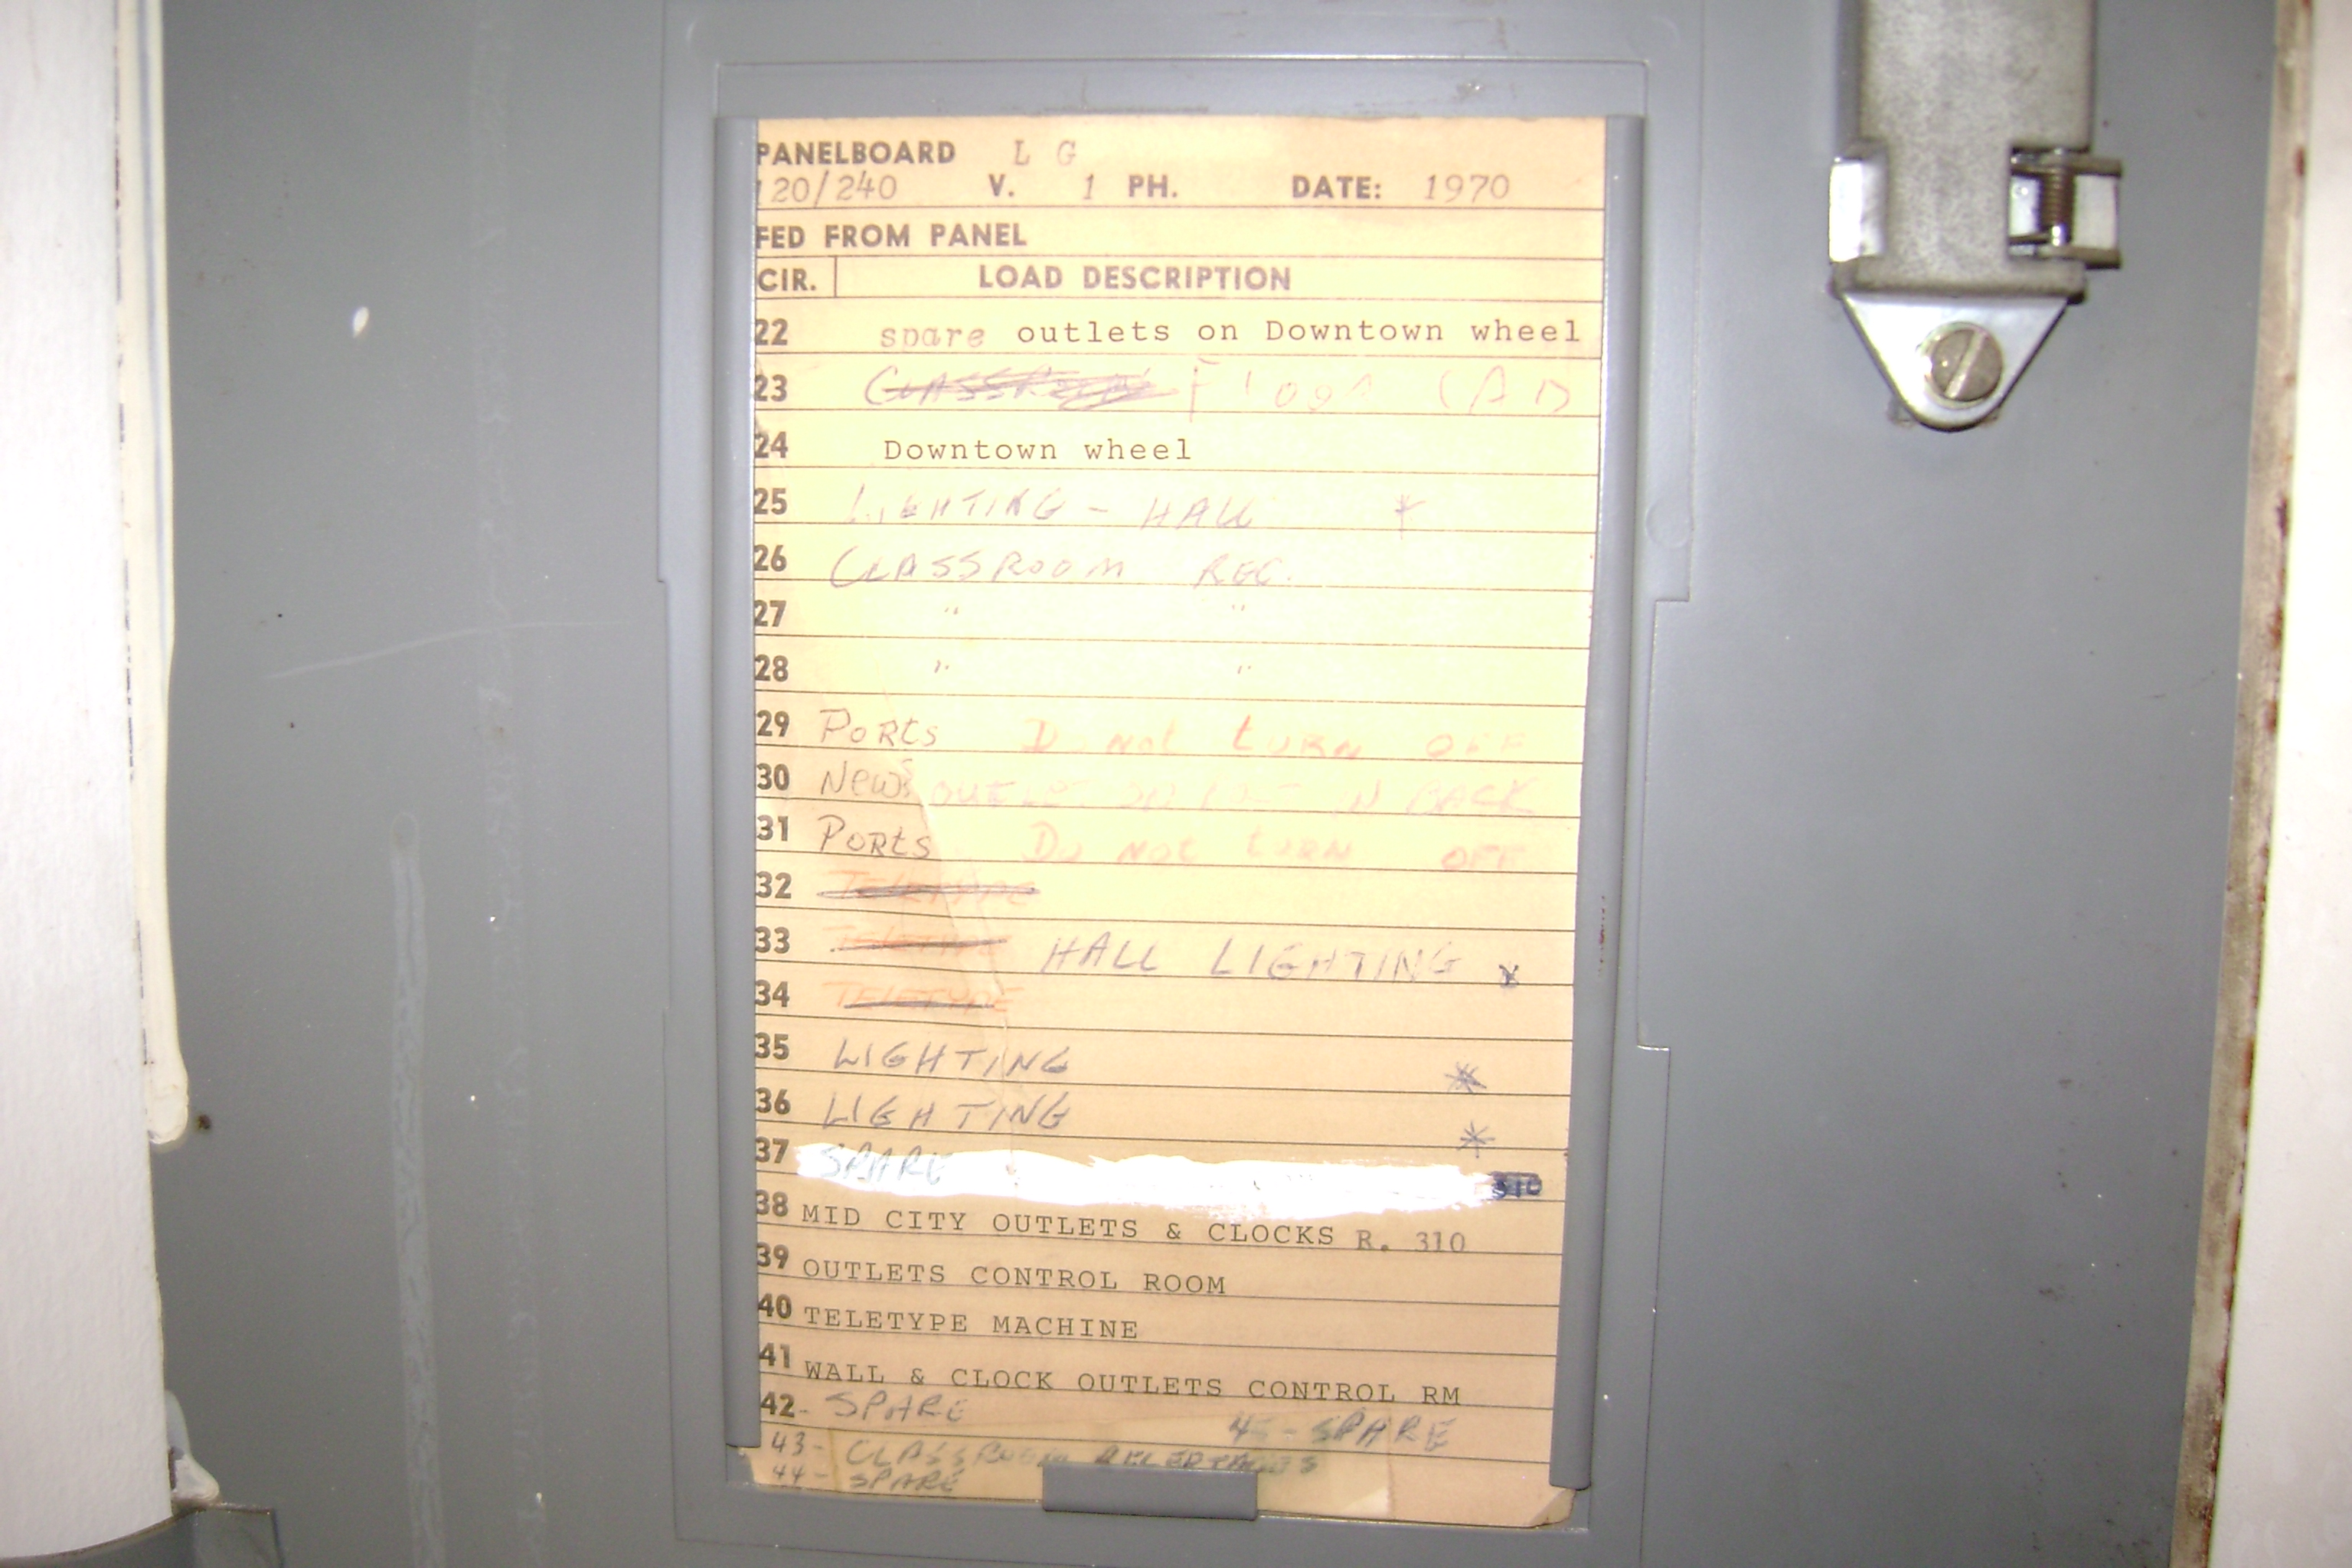 PANELBOARD L G
120/240 V. 1 PH. DATE: 1970
FED FROM PANEL
CIR. LOAD DESCRIPTION
22 spare outlets on Downtown wheel
23 CLASSROOM
24 Downtown wheel
25 LIGHTING - HALL *
26 CLASSROOM REC.
27 " "
28 " "
29 PORts Do Not tURN OFF
30 News OUTLET IN BACK
31 PORts Do NOt tURN OFF
32 TELETYPE
33 TELETYPE HALL LIGHTING *
34 TELETYPE
35 LIGHTING *
36 LIGHTING *
37 SPARE 310
38 MID CITY OUTLETS & CLOCKS R. 310
39 OUTLETS CONTROL ROOM
40 TELETYPE MACHINE
41 WALL & CLOCK OUTLETS CONTROL RM
42- SPARE 45 - SPARE
43- CLASSROOM
44- SPARE